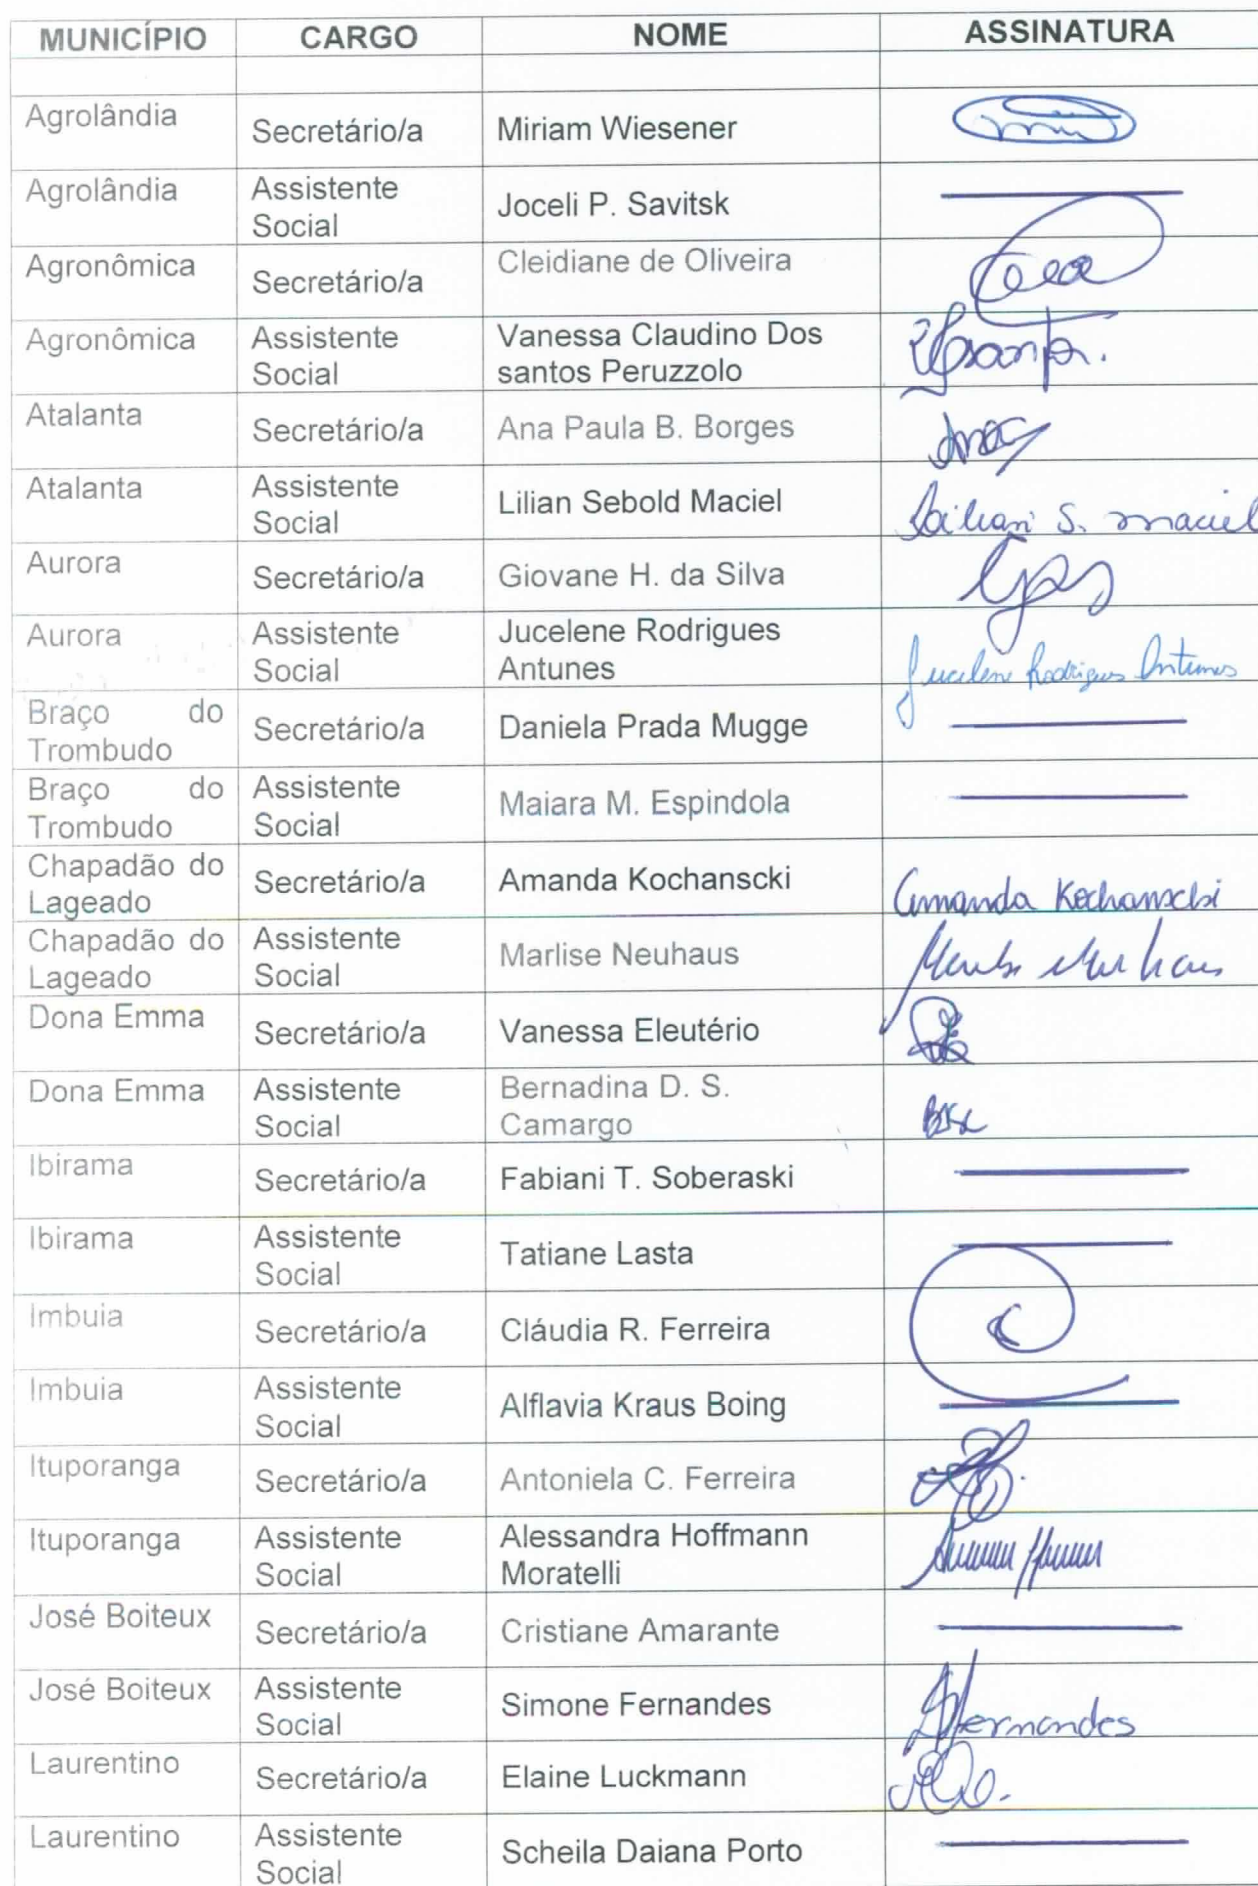 MUNICÍPIO CARGO NOME ASSINATURA
Agrolândia Secretário/a Miriam Wiesener
Agrolândia Assistente Social Joceli P. Savitsk
Agronômica Secretário/a Cleidiane de Oliveira
Agronômica Assistente Social Vanessa Claudino Dos santos Peruzzolo
Atalanta Secretário/a Ana Paula B. Borges
Atalanta Assistente Social Lilian Sebold Maciel Lilian S. Maciel
Aurora Secretário/a Giovane H. da Silva
Aurora Assistente Social Jucelene Rodrigues Antunes Jucelene Rodrigues Antunes
Braço do Trombudo Secretário/a Daniela Prada Mugge
Braço do Trombudo Assistente Social Maiara M. Espindola
Chapadão do Lageado Secretário/a Amanda Kochanscki Amanda Kochanscki
Chapadão do Lageado Assistente Social Marlise Neuhaus Marlise Neuhaus
Dona Emma Secretário/a Vanessa Eleutério
Dona Emma Assistente Social Bernadina D. S. Camargo
Ibirama Secretário/a Fabiani T. Soberaski
Ibirama Assistente Social Tatiane Lasta
Imbuia Secretário/a Cláudia R. Ferreira
Imbuia Assistente Social Alflavia Kraus Boing
Ituporanga Secretário/a Antoniela C. Ferreira
Ituporanga Assistente Social Alessandra Hoffmann Moratelli
José Boiteux Secretário/a Cristiane Amarante
José Boiteux Assistente Social Simone Fernandes SFernandes
Laurentino Secretário/a Elaine Luckmann
Laurentino Assistente Social Scheila Daiana Porto